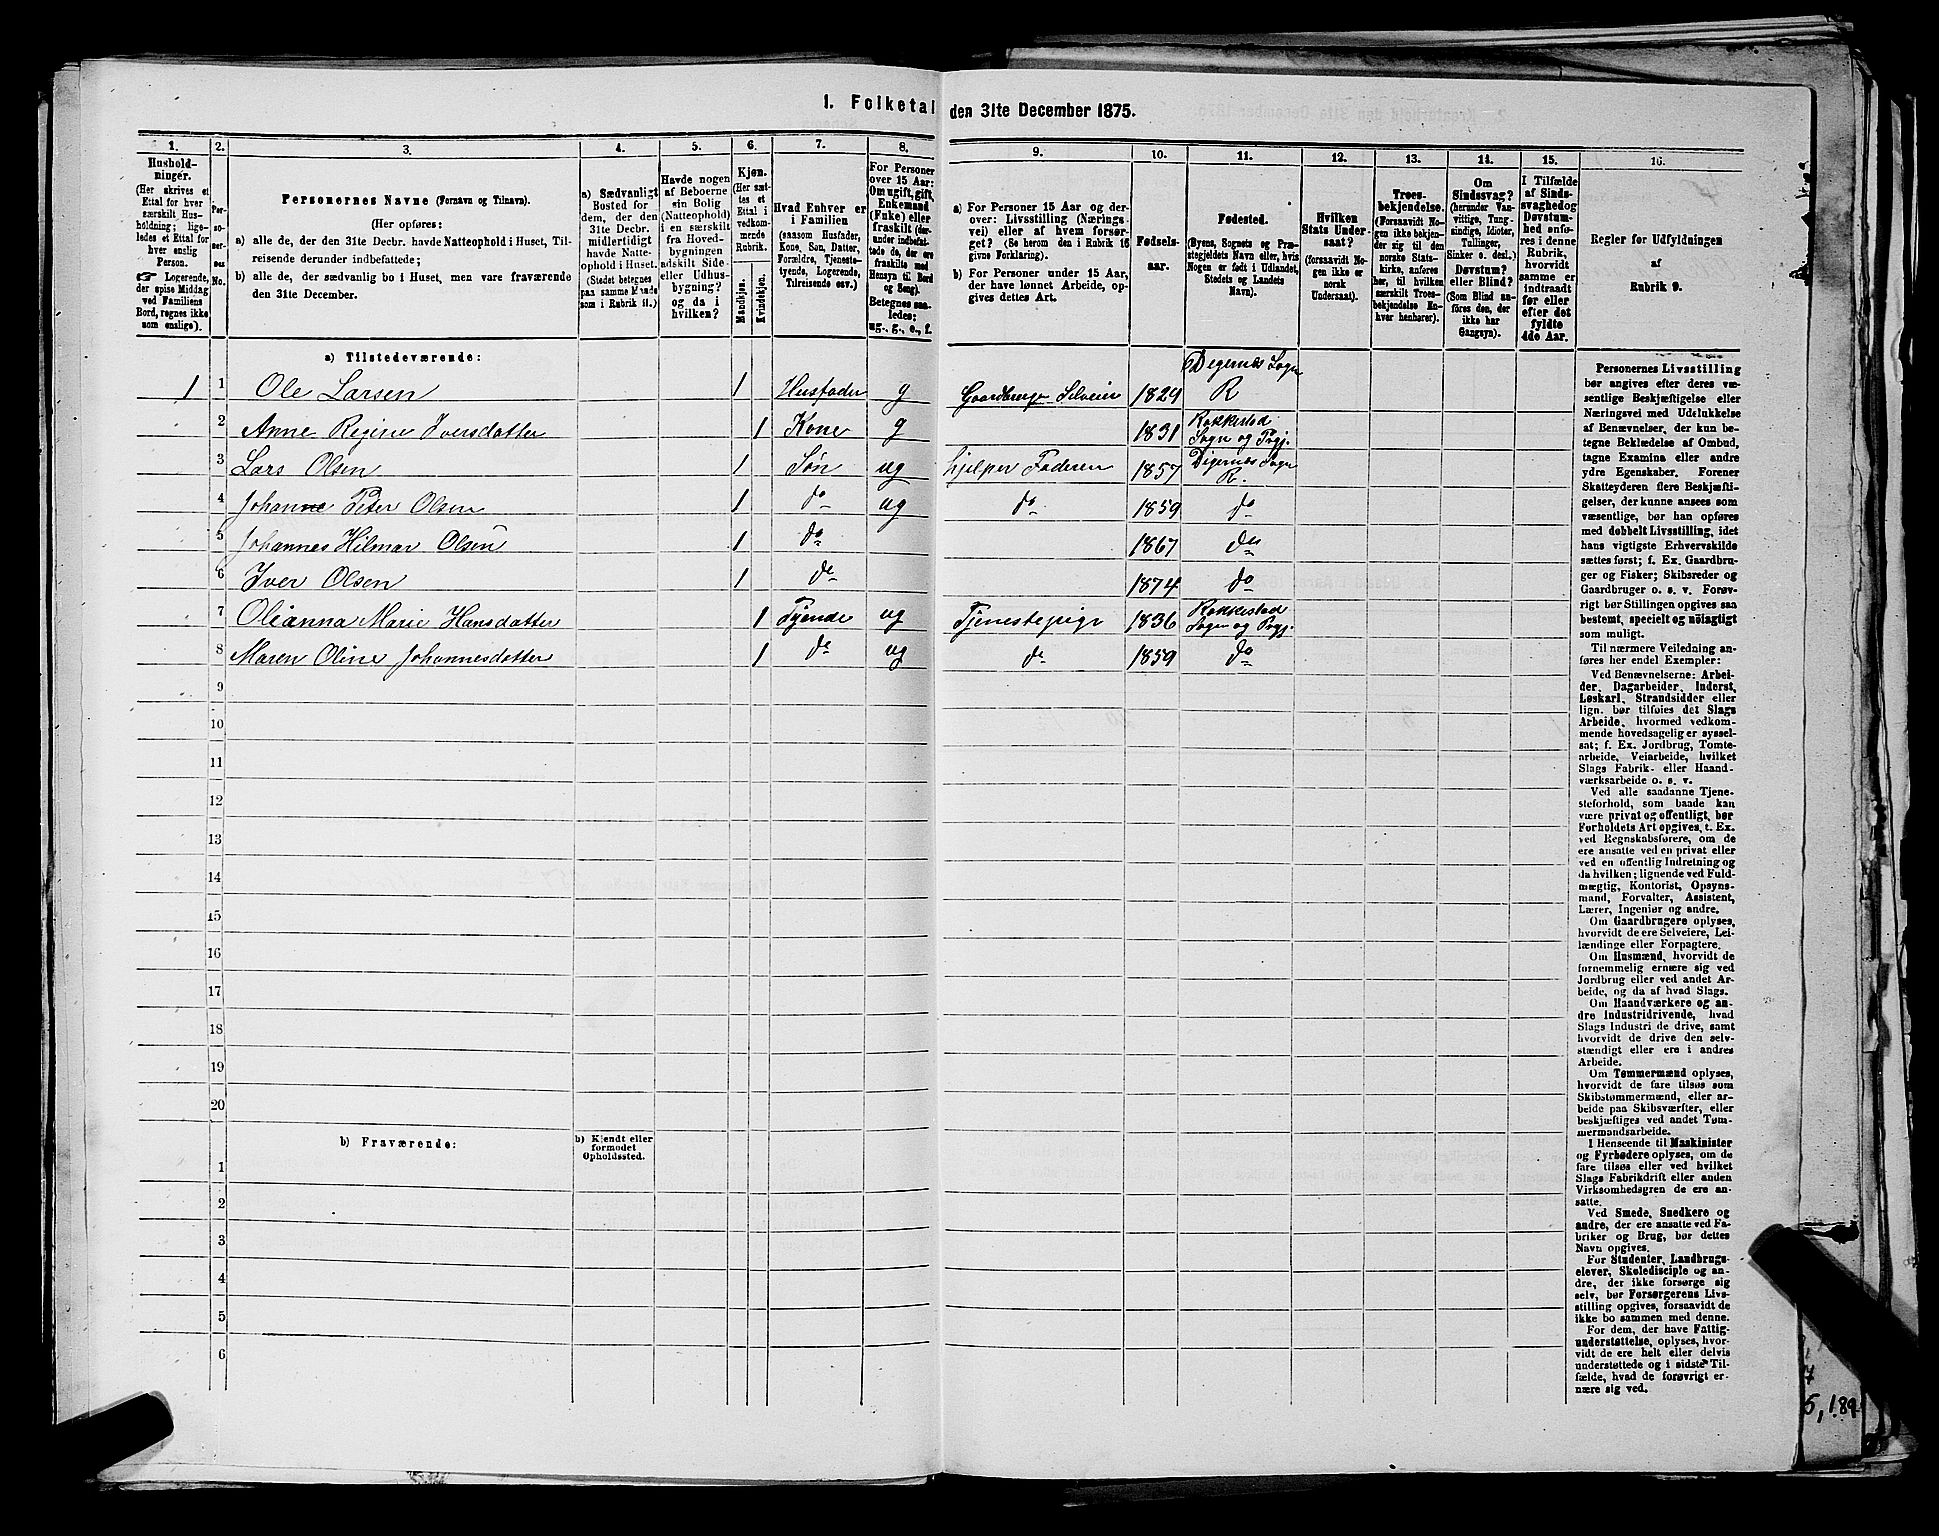 1. Folketal den 31te December 1875.
1.
Hushold-
ninger.
(Her skrives et
Ettal for hver
særskilt Hus-
holdning; lige-
ledes et Ettal for
hver enslig
Person.
☞ Logerende,
der spise Middag
ved Familiens
Bord, regnes ikke
som enslige).
2.
Per-
so-
ner-
nes
No.
3.
Personernes Navne (Fornavn og Tilnavn).
(Her opføres:
a) alle de, der den 31te Decbr. havde Natteophold i Huset, Til-
reisende derunder indbefattede;
b) alle de, der sædvanlig bo i Huset, men vare fraværende
den 31te December.
4.
a) Sædvanligt
Bosted for
dem, der den
31te Decbr.
midlertidigt
havde Natte-
ophold i Huset.
(Stedet betegnes
paa samme Maade
som i Rubrik 11.)
5.
Havde nogen
af Beboerne
sin Bolig
(Natteophold)
i en særskilt
fra Hoved-
bygningen
adskilt Side-
eller Udhus-
bygning?
og da i
hvilken?
6.
Kjøn.
(Her sæt-
tes et
Ettal i
vedkom-
mende
Rubrik.
Mandkjøn.
Kvindekjøn.
7.
Hvad Enhver er
i Familien
(saasom Husfader,
Kone, Søn, Datter,
Forældre, Tjeneste-
tyende, Logerende,
Tilreisende osv.)
8.
For Personer
over 15 Aar:
Om ugift, gift,
Enkemand
(Enke) eller
fraskilt (der-
under indbefat-
tede de, der ere
fraskilte med
Hensyn til Bord
og Seng).
Betegnes saa-
ledes:
ug., g., e., f.
9.
a) For Personer 15 Aar og der-
over: Livsstilling (Nærings-
vei) eller af hvem forsør-
get? (Se herom den i Rubrik 16
givne Forklaring).
b) For Personer under 15 Aar,
der have lønnet Arbeide, op-
gives dettes Art.
10.
Fødsels-
aar.
11.
Fødested.
(Byens, Sognets og Præ-
stegjeldets Navn eller, hvis
Nogen er født i Udlandet,
Stedets og Landets
Navn).
12.
Hvilken
Stats Under-
saat?
(forsaavidt No-
gen ikke er
norsk
Undersaat).
13.
Troes-
bekjendelse.
(Forsaavidt No-
gen ikke bekjen-
der sig til den
norske Stats-
kirke, anføres
her, til hvilken
særskilt Troes-
bekjendelse En-
hver henhører).
14.
Om
Sindssvag?
(herunder Van-
vittige, Tung-
sindige, Idioter,
Tullinger,
Sinker o. desl.)
Døvstum?
eller Blind?
(Som Blind an-
føres den, der
ikke har
Gangsyn).
15.
I Tilfælde
af Sinds-
svaghed og
Døvstum-
hed anfø-
res i denne
Rubrik,
hvorvidt
samme er
indtraadt
før eller
efter det
fyldte
4de Aar.
16.
Regler for Udfyldningen
af
Rubrik 9.
a) Tilstedeværende:
1 1 Ole Larsen 1 Husfader g Gaardbruger Selveier 1829 Degernes Sogn R
2 Anne Regine Iversdatter 1 Kone g 1831 Rakkestad Sogn og Prgj.
3 Lars Olsen 1 Søn ug hjelper Faderen 1857 Digernes Sogn R.
4 Johanne Peter Olsen 1 do ug do 1859 do
5 Johannes Hilmar Olsen 1 do 1867 do
6 Iver Olsen 1 do 1874 do
7 Olianna Marie Hansdatter 1 Tyende ug Tjenestepige 1836 Rakkestad Sogn og Prgj.
8 Maren Oline Johannesdatter 1 do ug do 1859 do
9
10
11
12
13
14
15
16
17
18
19
20
b) Fraværende:
b) Kjendt eller
formodet
Opholdssted.
1
2
3
4
5
6
Personernes Livsstilling
bør angives efter deres væ-
sentlige Beskjæftigelse eller
Næringsvei med Udelukkelse
af Benævnelser, der kun be-
tegne Beklædelse af Ombud,
tagne Examina eller andre
ydre Egenskaber. Forener
Skatteyderen flere Beskjæfti-
gelser, der kunne ansees som
væsentlige, bør han opføres
med dobbelt Livsstilling, idet
hans vigtigste Erhvervskilde
sættes først; f. Ex. Gaardbru-
ger og Fisker; Skibsreder og
Gaardbruger o. s. v. Forøv-
rigt bør Stillingen opgives saa
bestemt, specielt og nøiagtigt
som muligt.
Til nærmere Veiledning an-
føres her endel Exempler:
Ved Benævnelserne: Arbei-
der, Dagarbeider, Inderst,
Løskarl, Strandsidder eller
lign. bør tilføies det Slags
Arbeide, hvormed vedkom-
mende hovedsagelig er syssel-
sat; f. Ex. Jordbrug, Tomte-
arbeide, Veiarbeide, hvilket
Slags Fabrik- eller Haand-
værksarbeide o. s. v.
Ved alle saadanne Tjene-
steforhold, som baade kan
være privat og offentligt, bør
Forholdets Art opgives, t. Ex.
ved Regnskabsførere, om de
ere ansatte ved en privat eller
ved en offentlig Indretning og
da hvilken; lignende ved Fuld-
mægtig, Kontorist, Opsyns-
mand, Forvalter, Assistent,
Lærer, Ingeniør og andre.
Om Gaardbrugere oplyses,
hvorvidt de ere Selveiere, Lei-
lændinge eller Forpagtere.
Om Husmænd, hvorvidt de
fornemmelig ernære sig ved
Jordbrug eller ved andet Ar-
beide, og da af hvad Slags.
Om Haandværkere og an-
dre Industridrivende, hvad
Slags Industri de drive, samt
hvorvidt de drive den selv-
stændigt eller ere i andres
Arbeide.
Om Tømmermænd oplyses,
hvorvidt de fare tilsøs som
Skibstømmermænd, eller ar-
beide paa Skibsværfter, eller
beskjæftiges ved andet Tøm-
mermandsarbeide.
I Henseende til Maskinister
og Fyrbødere oplyses, om de
fare tilsøs eller ved hvilket
Slags Fabrikdrift eller anden
Virksomhedsgren de ere an-
satte.
Ved Smede, Snedkere og
andre, der ere ansatte ved Fa-
briker og Brug, bør dettes
Navn opgives.
For Studenter, Landbrugs-
elever, Skoledisciple og an-
dre, der ikke forsørge sig
selv, bør Forsørgerens Livs-
stilling opgives, forsaavidt de
ikke bo sammen med denne.
For dem, der have Fattig-
understøttelse, oplyses, hvor-
vidt de ere helt eller delvis
understøttede og i sidste Til-
fælde, hvad de forøvrigt er-
nære sig ved.
7
5,189